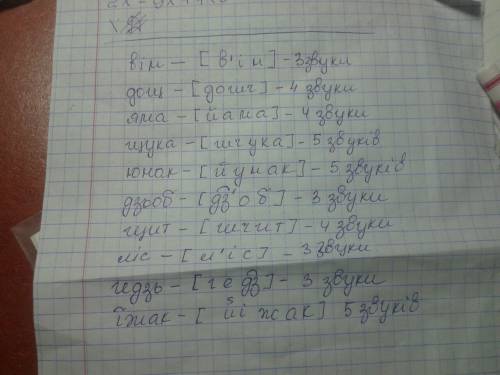 він — [в'ін] - 3 звуки
дощ — [дошч] - 4 звуки
яма — [йама] - 4 звуки
щука — [шчука] - 5 звуків
юнак — [йунак] - 5 звуків
дзьоб - [дз'об] - 3 звуки
щит - [шчит] - 4 звуки
ліс - [л'іс] - 3 звуки
ґедзь - [ґедз] - 3 звуки
їжак - [йіжак] 5 звуків